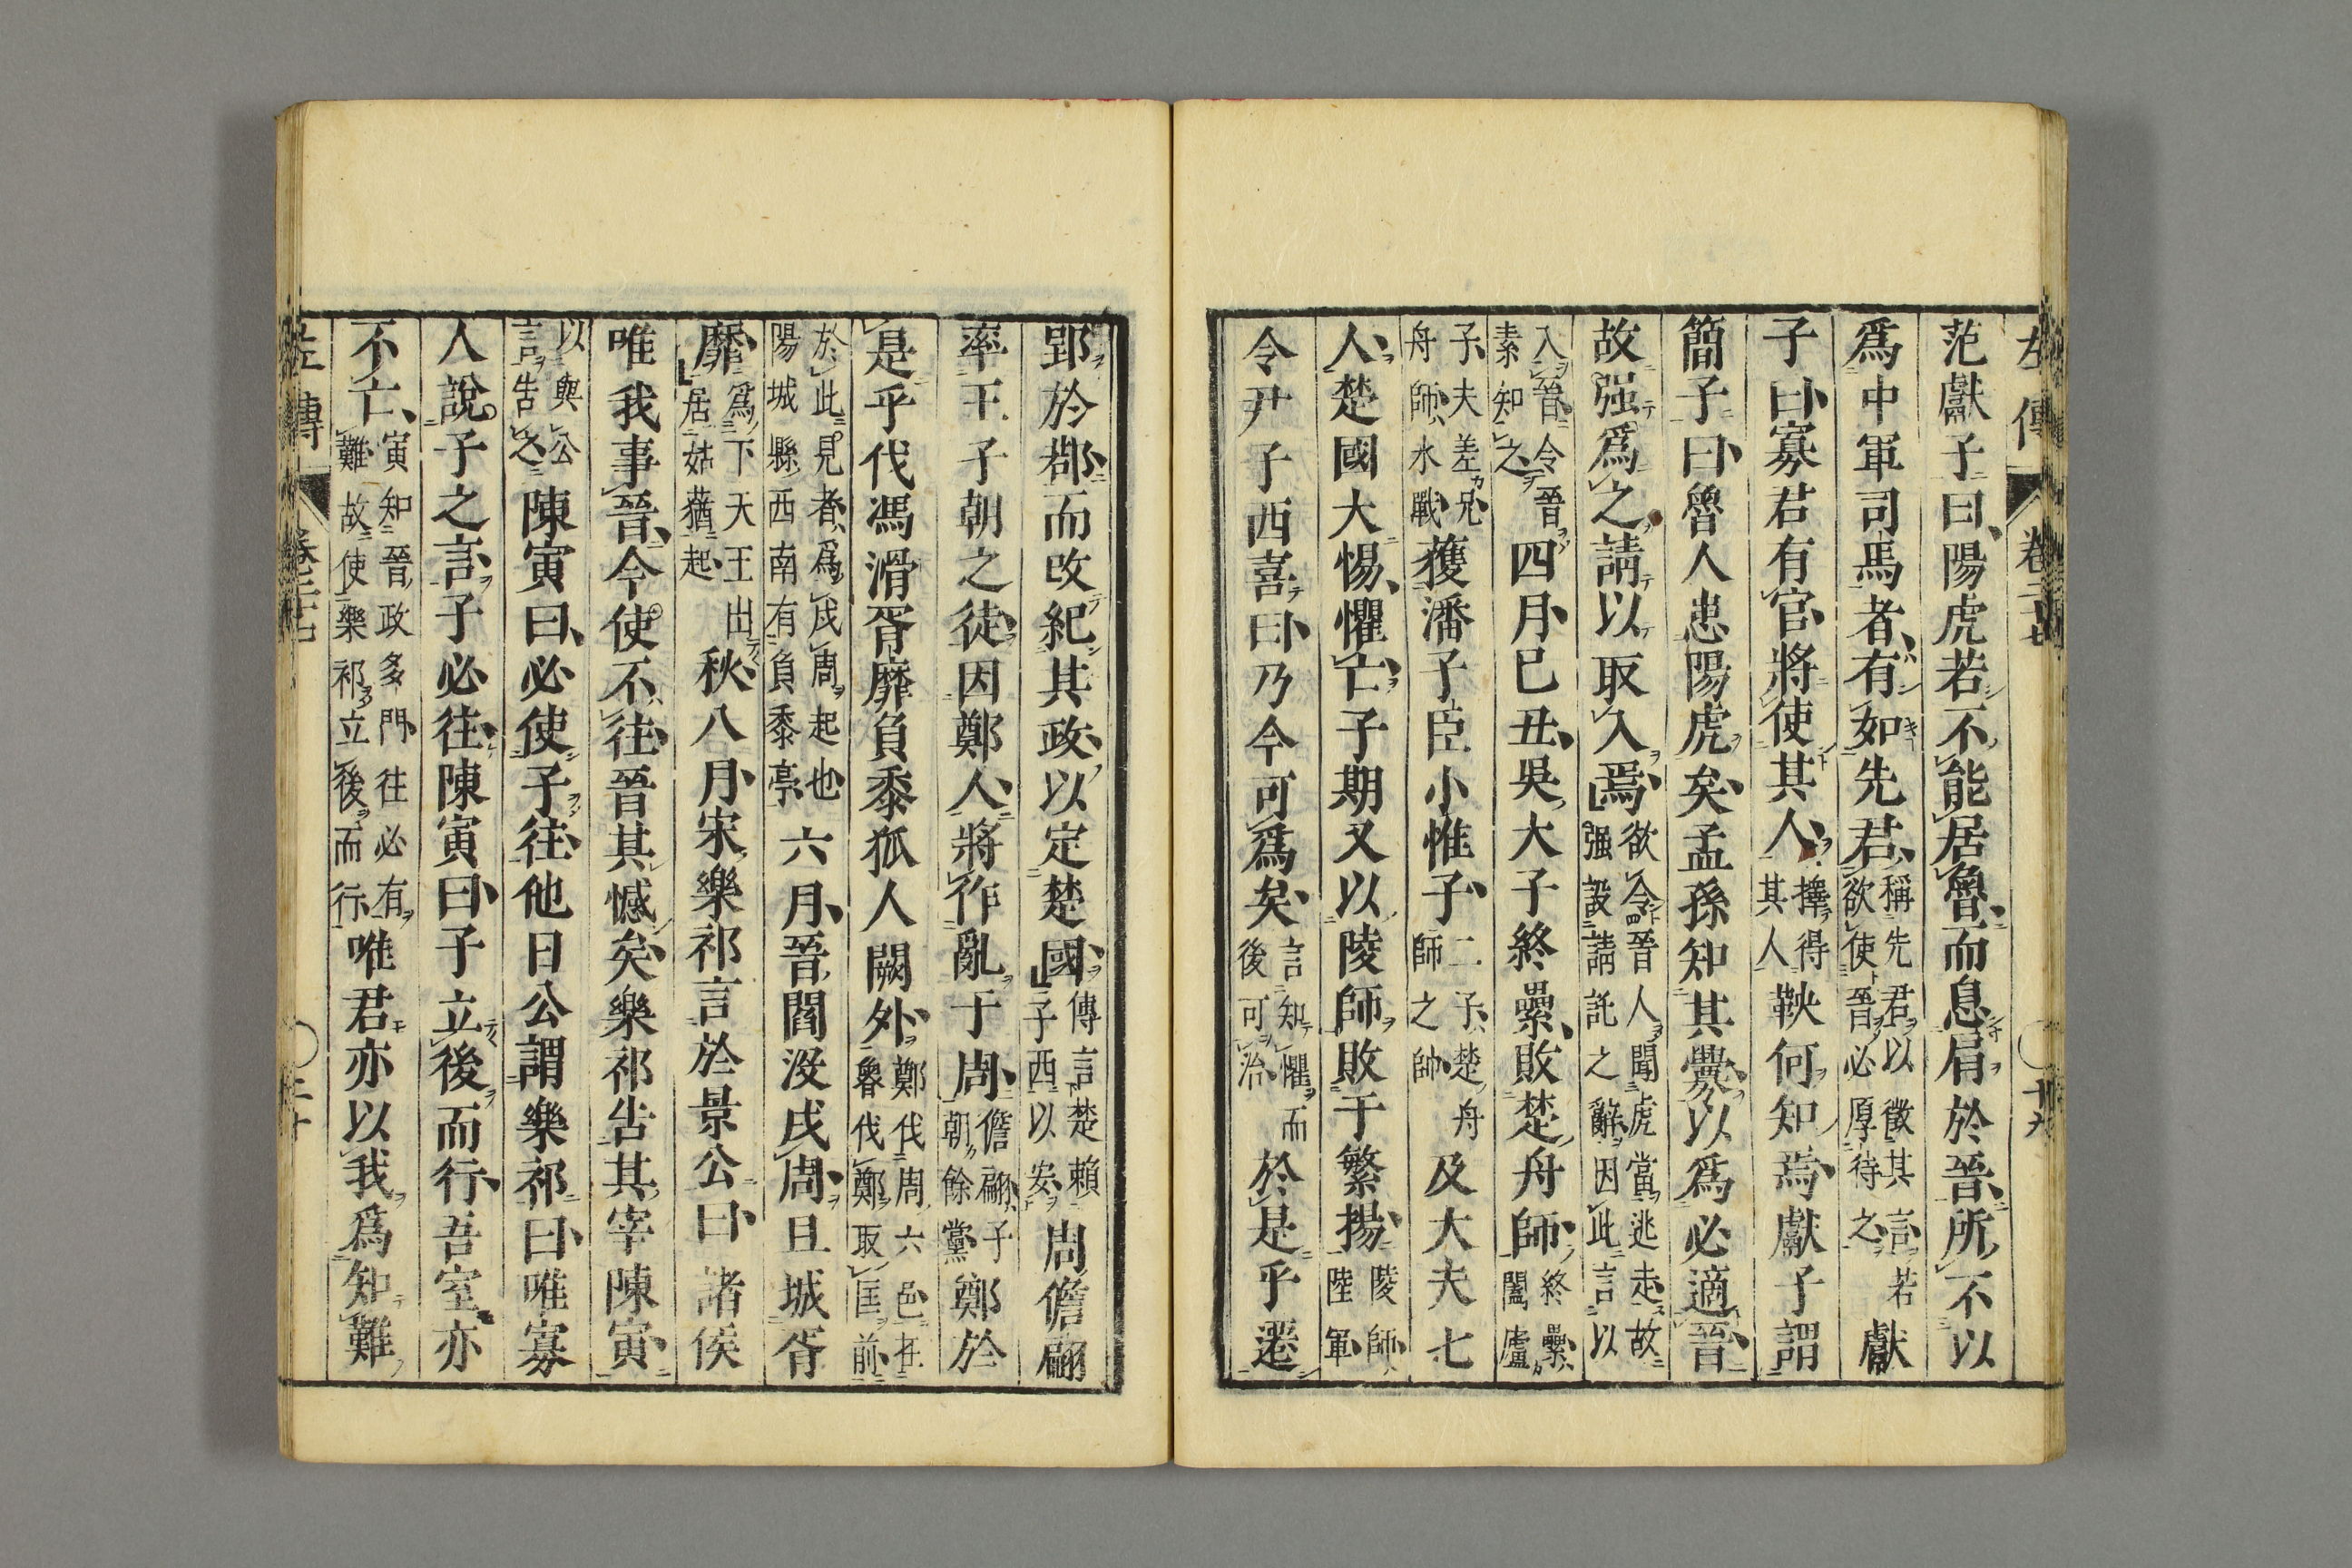 范獻子曰陽虎若不能居魯而息肩於晉所不以
爲中軍司馬者有如先君稱先君以徵其言若欲使晉必厚待之獻
子曰寡君有官將使其人擇得其人鞅何知焉獻子謂
簡子曰魯人患陽虎矣孟孫知其釁以爲必適晉
故强爲之請以取入焉欲令晉人聞虎當逃走故强設請託之辭因此言以
入晉令晉素知之四月己丑吳大子終纍敗楚舟師終纍闔廬
子夫差兄舟師水戰獲潘子臣小惟子二子楚舟師之帥及大夫七
人楚國大惕懼亡子期又以陵師敗于繁揚陵師陸軍
令尹子西喜曰乃今可爲矣言知懼而後可治於是乎遷
郢於鄀而改紀其政以定楚國傳言楚賴子西以安周儋翩
率王子朝之徒因鄭人將作亂于周儋翩子朝餘黨鄭於
是乎伐馮滑胥靡負黍狐人闕外鄭伐周六邑在魯伐鄭取匡前
於此見者爲戍周起也陽城縣西南有負黍亭六月晉閻沒戍周且城胥
靡爲下天王出居姑蕕起秋八月宋樂祁言於景公曰諸侯
唯我事晉今使不往晉其憾矣樂祁告其宰陳寅
以與公言告之陳寅曰必使子往他日公謂樂祁曰唯寡
人說子之言子必往陳寅曰子立後而行吾室亦
不亡寅知晉政多門往必有難故使樂祁立後而行唯君亦以我爲知難
左傳